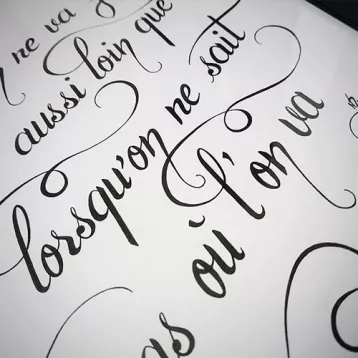 ne va
aussi loin que
lorsqu'on ne sait
où l'on va
as